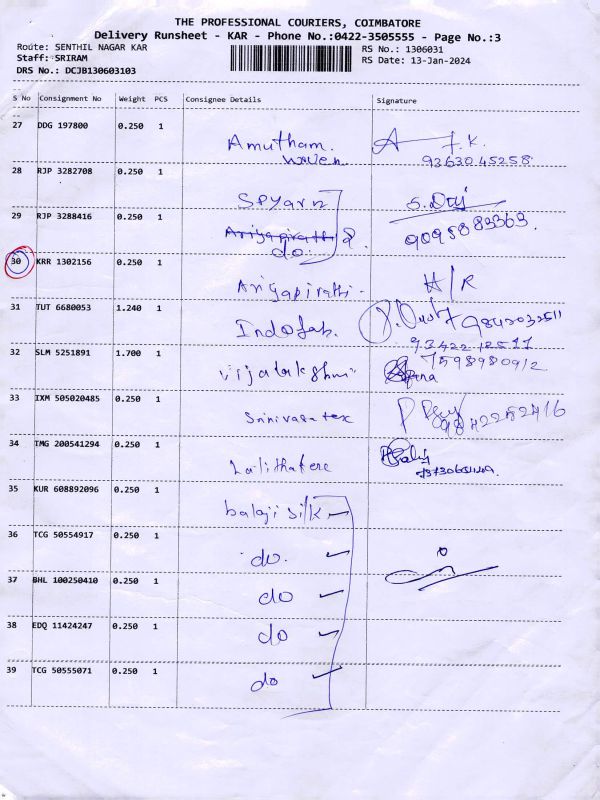 THE PROFESSIONAL COURIERS, COIMBATORE
Delivery Runsheet - KAR - Phone No.:0422-3505555 - Page No.:3
Route: SENTHIL NAGAR KAR RS No.: 1306031
Staff:SRIRAM RS Date: 13-Jan-2024
DRS No.: DCJB130603103
S No Consignment No Weight PCS Consignee Details Signature
27 DDG 197800 0.250 1 Amutham
woven J.K.
93630 45258
28 RJP 3282708 0.250 1 Spyarn S.
29 RJP 3288416 0.250 1 Ariyapirathi
do. 9095883363
30 KRR 1302156 0.250 1 Ariyapirathi H/R
31 TUT 6680053 1.240 1 Indofab. 9842032511
93422 12511
32 SLM 5251891 1.700 1 Vijalakshmi 7598980912
33 IXM 505020485 0.250 1 Srinivasa tex 9842252416
34 TMG 200541294 0.250 1 Lalithatere
35 KUR 608892096 0.250 1 balaji silk
36 TCG 50554917 0.250 1 do.
37 BHL 100250410 0.250 1 do
38 EDQ 11424247 0.250 1 do
39 TCG 50555071 0.250 1 do